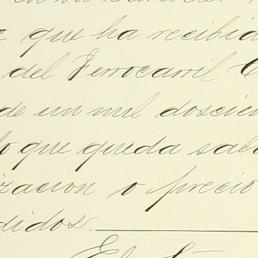 que ha recibid
del Ferrocarril C
de un mil doscien
lo que queda sal
zacion o precio
didos